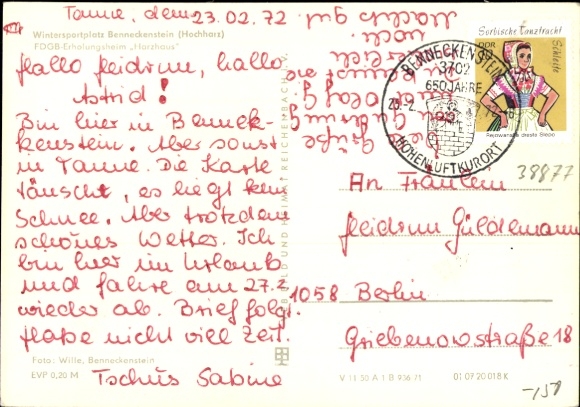 Tanne, dem 23.02.72
Wintersportplatz Benneckenstein (Hochharz)
FDGB-Erholungsheim „Harzhaus"
Hallo Heidrun, hallo
Astrid!
Bin hier in Bennek-
kenstein. Aber sonst
in Tanne. Die Karte
täuscht, es liegt kein
Schnee. Aber trotzdem
schönes Wetter. Ich
bin hier im Urlaub
und fahre am 27.2.
wieder ab. Brief folgt.
Habe nicht viel Zeit.
Tschüs Sabine
Foto: Wille, Benneckenstein
EVP 0,20 M
BILD UND HEIMAT REICHENBACH
V 11 50 A 1 B 936/71
01 07 20 018 K
Grüße
noch
Sorbische Tanztracht
Schleife
DDR
BENNECKENSTEIN
3702
650 JAHRE
HÖHENLUFTKURORT
38877
An Fräulein
Heidrun Güldemann
1058 Berlin
Griebenowstraße 18
-,150